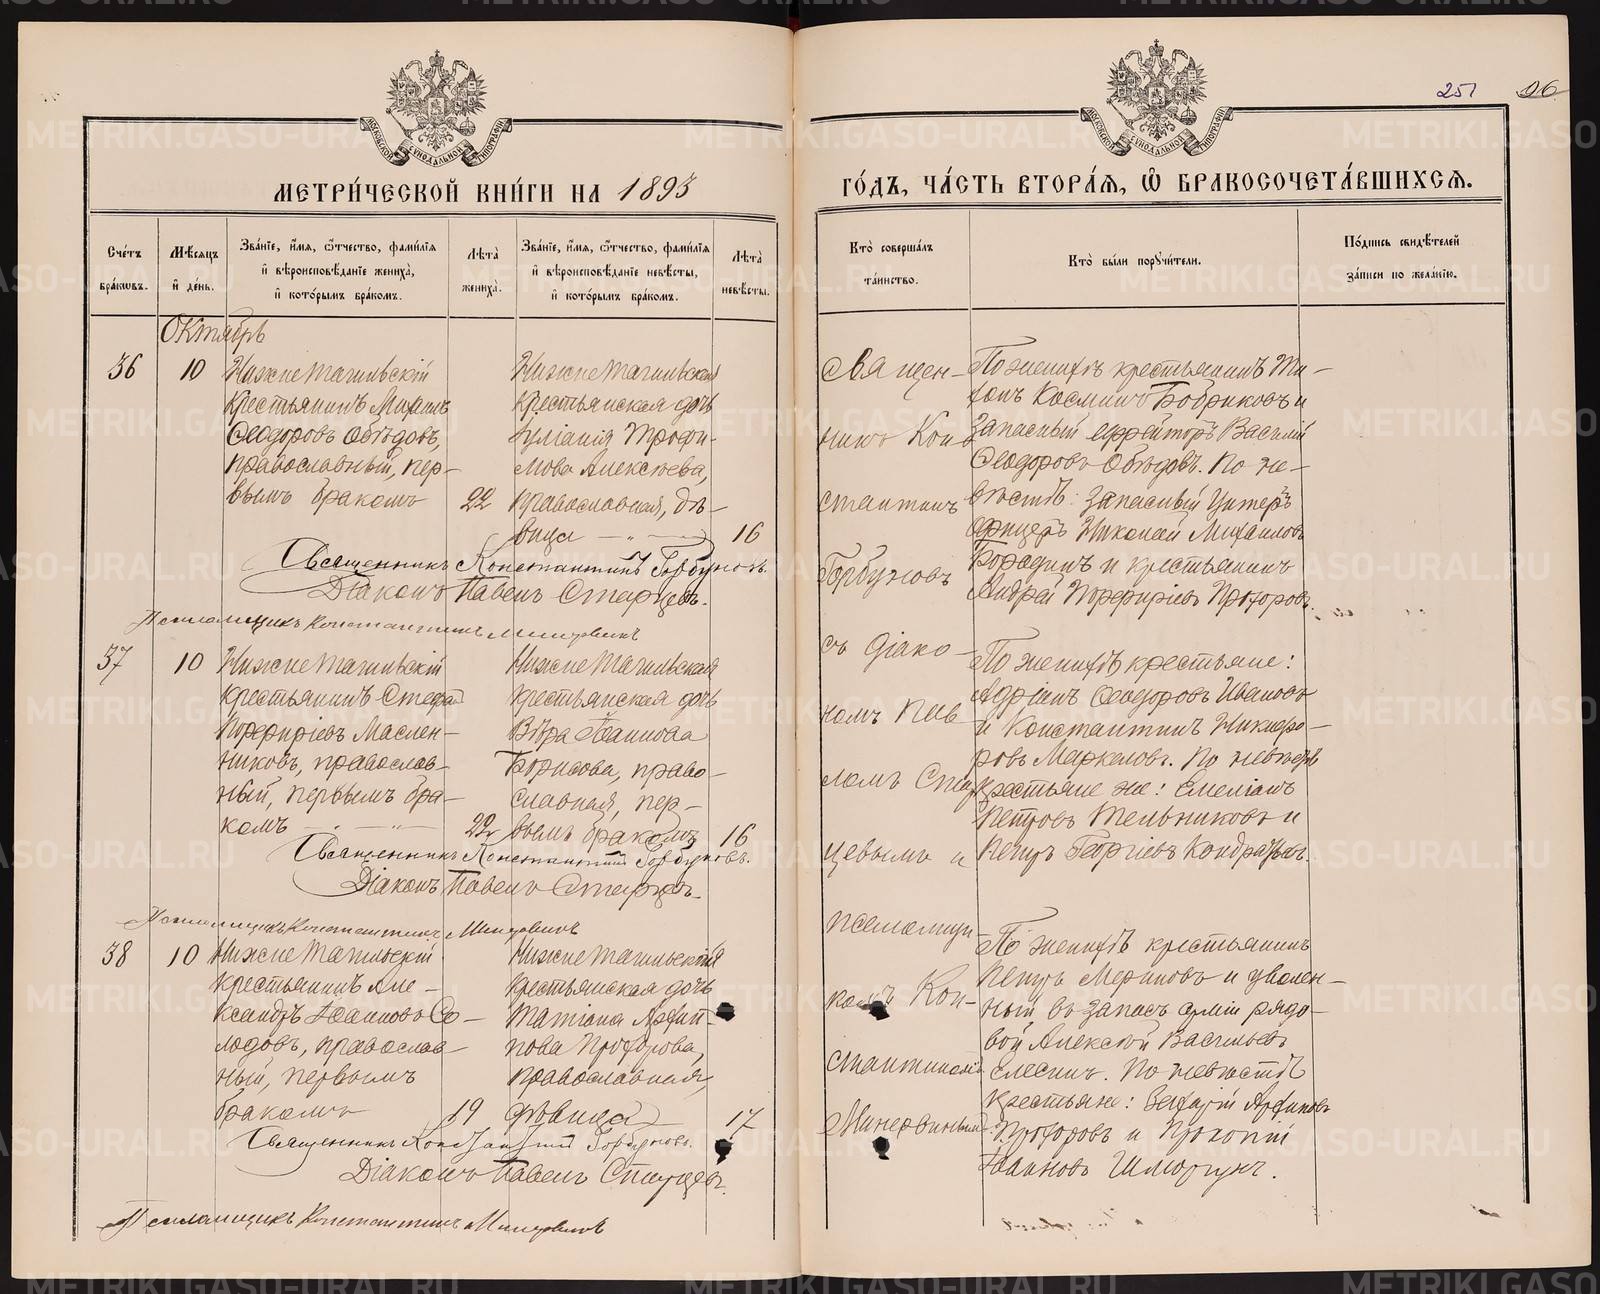 МЕТРИ́ЧЕСКОЙ КНИ́ГИ НА 1893
Сче́тъ бра́ковъ.
Мѣ́сяцъ и҆ де́нь.
Зва́нїе, и҆́мя, ѻ҆́тчество, фами́лїя и҆ вѣроисповѣ́данїе жениха̀, и҆ кото́рымъ бра́комъ.
Лѣ́та жениха̀.
Зва́нїе, и҆́мя, ѻ҆́тчество, фами́лїя и҆ вѣроисповѣ́данїе невѣ́сты, и҆ кото́рымъ бра́комъ.
Лѣ́та невѣ́сты.
Октябрь
36
10
Нижнетагильскій
крестьянинъ Михаилъ
Ѳеодоровъ Обѣдовъ,
православный, пер-
вымъ бракомъ
22
Нижнетагильская
крестьянская дочь
Іуліанія Трофи-
мова Алексѣева,
православная, дѣ-
вица — " —
16
Священникъ Константинъ Горбуновъ.
Діаконъ Павелъ Старцевъ.
Псаломщикъ Константинъ
37
10
Нижнетагильскій
крестьянинъ Стефанъ
Порфиріевъ Маслен-
никовъ, православ-
ный, первымъ бра-
комъ — " —
22
Нижнетагильская
крестьянская дочь
Вѣра Іоаннова
Борисова, право-
славная, пер-
вымъ бракомъ
16
Священникъ Константинъ Горбуновъ.
Діаконъ Павелъ Старцевъ.
Псаломщикъ Константинъ
38
10
Нижнетагильскій
крестьянинъ Але-
ксандръ Іоанновъ Со-
лодовъ, православ-
ный, первымъ
бракомъ
19
Нижнетагильская
крестьянская дочь
Татіана Архип-
пова Прохорова,
православная,
дѣвица
17
Священникъ Константинъ Горбуновъ.
Діаконъ Павелъ Старцевъ.
Псаломщикъ Константинъ
251
96
ГО́ДЪ, ЧА́СТЬ ВТОРА́Я, Ѡ҆ БРАКОСОЧЕТА́ВШИХСЯ.
Кто̀ соверша́лъ та́инство.
Кто̀ бы́ли порꙋчи́тели.
По́дпись свидѣ́телей за́писи по жела́нїю.
Священ-
никъ Кон-
стантинъ
Горбуновъ
съ діако-
номъ Пав-
ломъ Стар-
цевымъ и
псаломщи-
комъ Кон-
стантиномъ
Минервинымъ
По женихѣ крестьянинъ Ти-
хонъ Косминъ Бобриковъ и
запасный ефрейторъ Василій
Ѳеодоровъ Обѣдовъ. По не-
вѣстѣ: запасный унтеръ
офицеръ Николай Михаиловъ
Бородинъ и крестьянинъ
Андрей Порфиріевъ Прохоровъ.
По женихѣ крестьяне:
Адріанъ Ѳеодоровъ Ивановъ
и Константинъ Никифо-
ровъ Маркеловъ. По невѣстѣ
крестьяне же: Емеліанъ
Петровъ Мельниковъ и
Петръ Георгіевъ Кондратьевъ.
По женихѣ крестьянинъ
Петръ Мериновъ и уволен-
ный въ запасъ арміи рядо-
вой Алексѣй Васильевъ
Слесинъ. По невѣстѣ
крестьяне: Архиповъ
Прохоровъ и Прокопій
Іоанновъ Шмотулъ.
METRIKI.GASO-URAL.RU